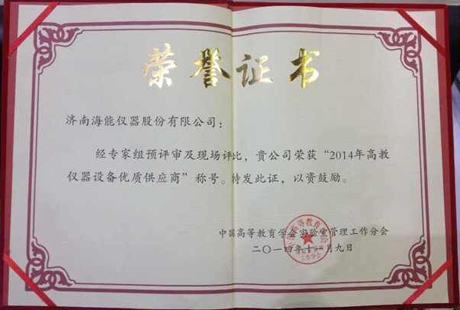 荣誉证书
济南海能仪器股份有限公司：
经专家组预评审及现场评比，贵公司荣获“2014年高教
仪器设备优质供应商”称号。特发此证，以资鼓励。
中国高等教育学会实验室管理工作分会
二〇一四年十一月九日